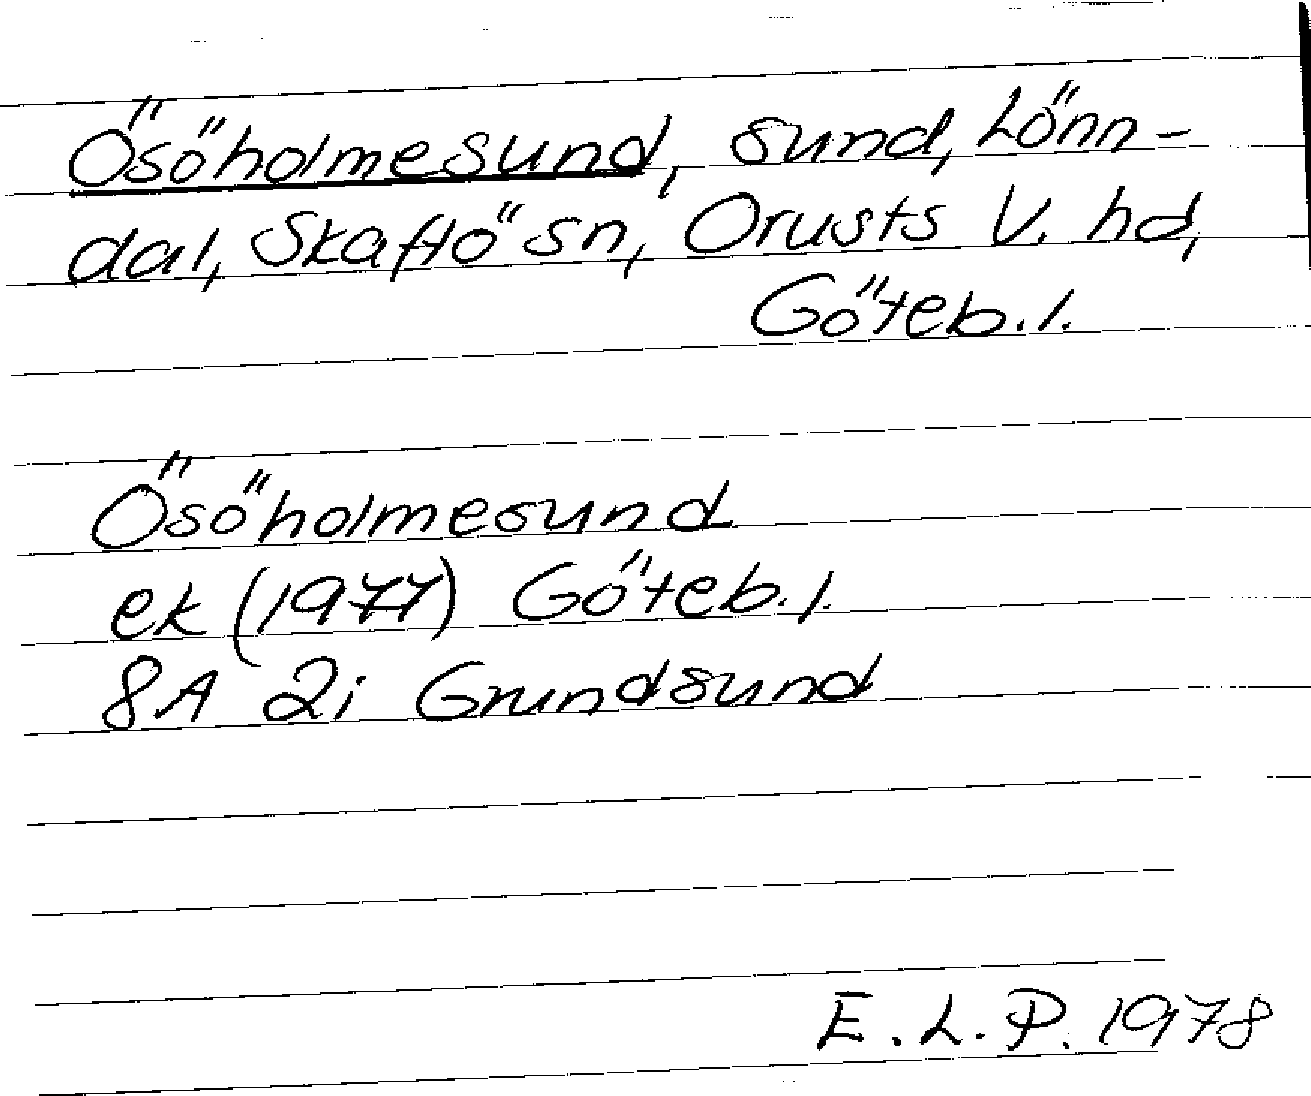 Ösöholmesund, sund, Lönn-
dal, Skaftö sn, Orusts V. hd,
Göteb. l.
Ösöholmesund
ek (1977) Göteb. l.
8A 2i Grundsund
E. L. P. 1978